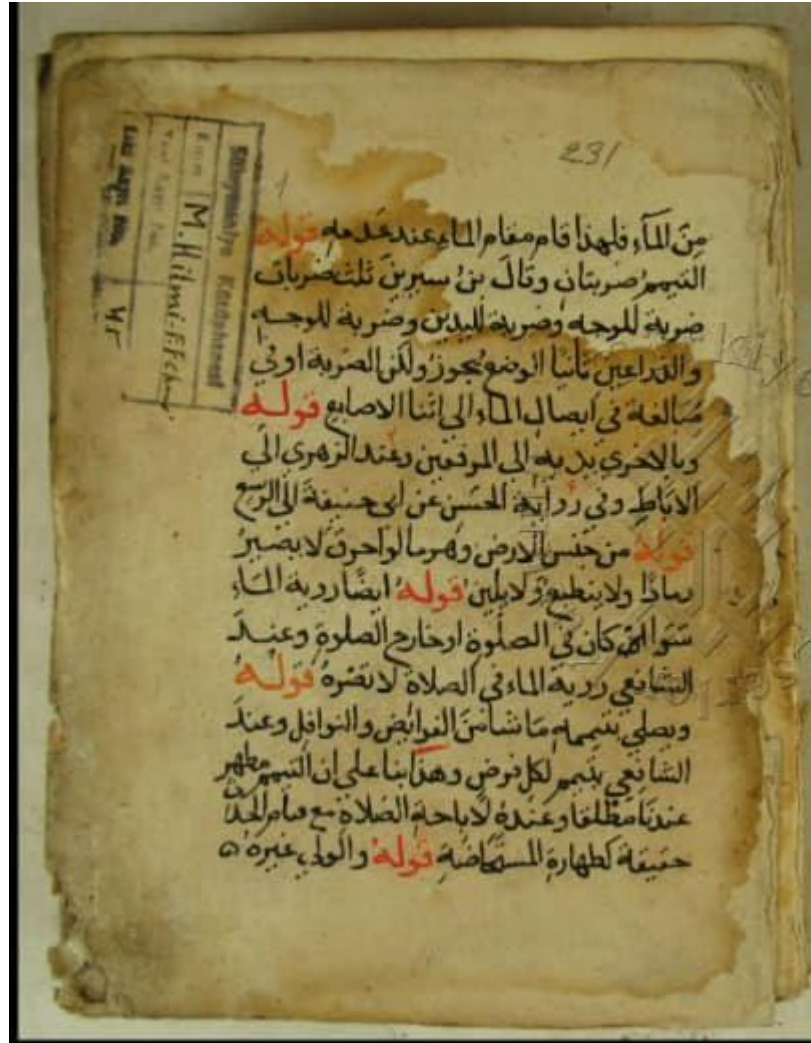 231
1
Süleymaniye Kütüphanesi
Kısmı M. Hilmi-F.Fehmi
Yeni Kayıt No.
Eski Kayıt No.
من المآء فلهذا قام مقام الماء عند عدمه قوله
التيمم ضربتان وقال بن سيرين ثلث ضربات
ضربة للوجه وضربة لليدين وضربة للوجه
والذراعين ثانيا الوضع يجوز ولكن الضربة اولي
مبالغة في ايصال الماء الى اثنا الاصابع قوله
وبالاخري يديه الى المرفقين وعند الزهري الى
الاباط وفي رواية الحسن عن ابى حنيفة الى الرسغ
قوله من جنس الارض وهو ما لو احرق لا يصير
رمادا ولا ينطبع ولا يلين قوله ايضا روية الماء
سوا كان في الصلوة او خارج الصلوة وعند
الشافعي روية الماء في الصلاة لا تضره قوله
ويصلي بتيممه ما شا من الفرائض والنوافل وعند
الشافعي يتيمم لكل فرض وهذا بنا على ان التيمم مطهر
عندنا مطلقا وعنده لاباحة الصلاة مع قيام الحدث
حقيقة كطهارة المستحاضة قوله والولي غيره